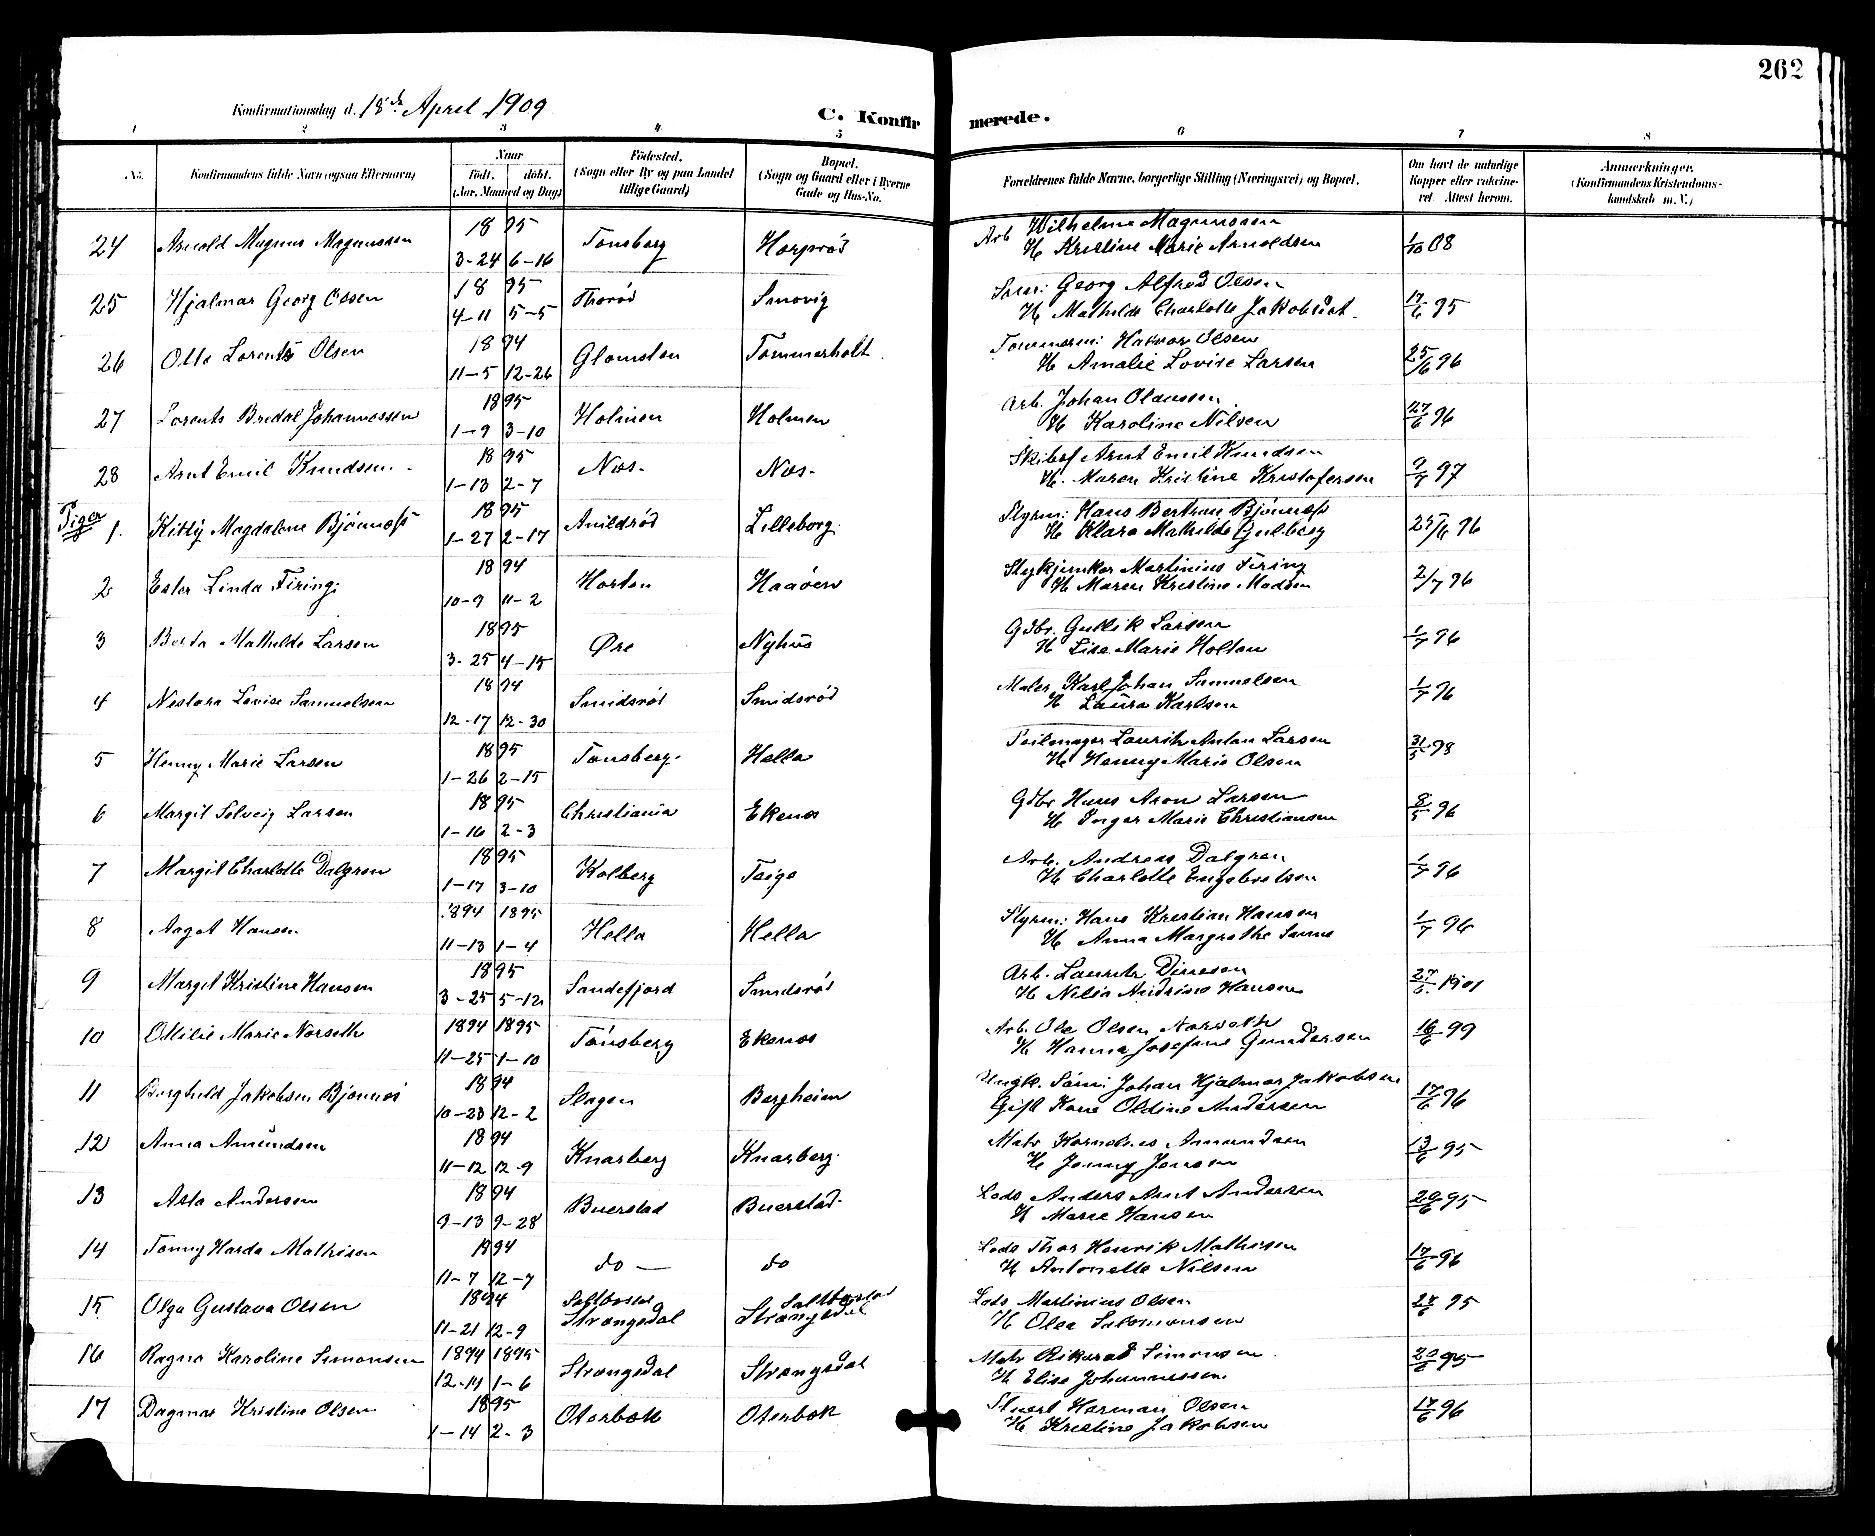 262
Konfirmationsdag d. 18de April 1909
C. Konfirmerede.
1 2 3 4 5 6 7 8
No. Konfirmandens fulde Navn (ogsaa Efternavn) Naar Født. døbt. (Aar, Maaned og Dag) Fødested. (Sogn eller By og paa Landet tillige Gaard) Bopæl. (Sogn og Gaard eller i Byerne Gade og Hus-No. Forældrenes fulde Navne, borgerlige Stilling (Næringsvei) og Bopæl. Om havt de naturlige Kopper eller vakcineret Attest herom. Anmerkninger. (Konfirmandens Kristendomskundskab m. V.)
24 Arnold Magnus Magnussen 1895 3-24 6-16 Tønsberg Horperød Arb Wilhelm Magnussen
H Kristine Marie Arnoldsen 1/10 08
25 Hjalmar Georg Olsen 1895 4-11 5-5 Thorød Smovig Søm: Georg Alfred Olsen
H Mathilde Charlotte Jakobsdat. 17/6 95
26 Otto Lorents Olsen 1894 11-5 12-26 Glomsten Tømmerholt Tømmerm: Halvor Olsen
H Amalie Lovise Larsen 25/6 96
27 Lorents Bredal Johannessen 1895 1-9 3-10 Holmen Holmen Arb. Johan Olaussen
H Karoline Nilsen 27/6 96
28 Arnt Emil Knudsen 1895 1-13 2-7 Næs Næs Skibsf Arnt Emil Knudsen
H. Maren Kristine Kristofersen 9/7 97
Piger
1. Kitty Magdalene Bjønnes 1895 1-27 2-17 Anildrød Lilleborg Styrm: Hans Bertran Bjønnes
H Klara Mathilde Gulberg 25/6 96
2 Ester Linda Firing 1894 10-9 11-2 Horten Haaøen Stykjunker Martinius Firing
H Maren Kristine Madsen 2/7 96
3 Berta Mathilde Larsen 1895 3-25 4-15 Øre Nyhus Gdbr. Gullik Larsen
H Lisa Marie Holtan 1/7 96
4 Nestora Lovise Samuelsen 1894 12-17 12-30 Smidsrød Smidsrød Maler Karl Johan Samuelsen
H Laura Karlsen 1/7 96
5 Henny Marie Larsen 1895 1-26 2-15 Tønsberg Hella Seilmager Laurits Anton Larsen
H Henny Marie Olsen 31/5 98
6 Margit Solveig Larsen 1895 1-16 2-3 Christiania Ekenes Gdbr Hans Aron Larsen
H Inger Marie Christiansen 8/5 96
7 Margit Charlotte Dalgren 1895 1-17 3-10 Kolberg Teige Arb. Andreas Dalgren
H Charlotte Engebretsen 1/7 96
8 Aagot Hansen 1894 1895 11-13 1-4 Hella Hella Styrm: Hans Kristian Hansen
H Anna Margrethe 1/7 96
9 Margit Kristine Hansen 1895 3-25 5-12 Sandefjord Smidsrød Arb. Laurits Dinesen
H Nilia Andrine Hansen 27/6 1901
10 Ottilie Marie Norseth 1894 1895 11-25 1-10 Tønsberg Ekenes Arb. Ole Olsen Norseth
H Hanna Josefine Gundersen 16/6 99
11 Borghild Jakobsen Bjønnes 1894 10-23 12-2 Slagen Bergheim Ungk. Søm: Johan Hjalmar Jakobsen
Gift Kone Oldine Andersen 17/6 96
12 Anna Amundsen 1894 11-12 12-9 Knarberg Knarberg Matr Kornelius Amundsen
H Jenny Jensen 13/6 95
13 Asta Andersen 1894 9-13 9-28 Buerstad Buerstad Lods Anders Arnt Andersen
H Marie Hansen 20/6 95
14 Tonny Harda Mathisen 1894 11-7 12-7 do do Lods Thor Henrik Mathisen
H Antonette Nilsen 17/6 96
15 Olga Gustava Olsen 1894 11-21 12-9 Saltbostad Strængsdal Saltbostad Strængsdal Lods Martinius Olsen
H Olea Salomonsen 27/6 95
16 Ragna Karoline Simonsen 1894 1895 12-14 1-6 Strængsdal Strængsdal Matr Rikard Simonsen
H Elise Johannessen 20/6 95
17 Dagmar Kristine Olsen 1895 1-14 2-3 Oterbæk Oterbæk Stuert Herman Olsen
H Kristine Jakobsen 17/6 96